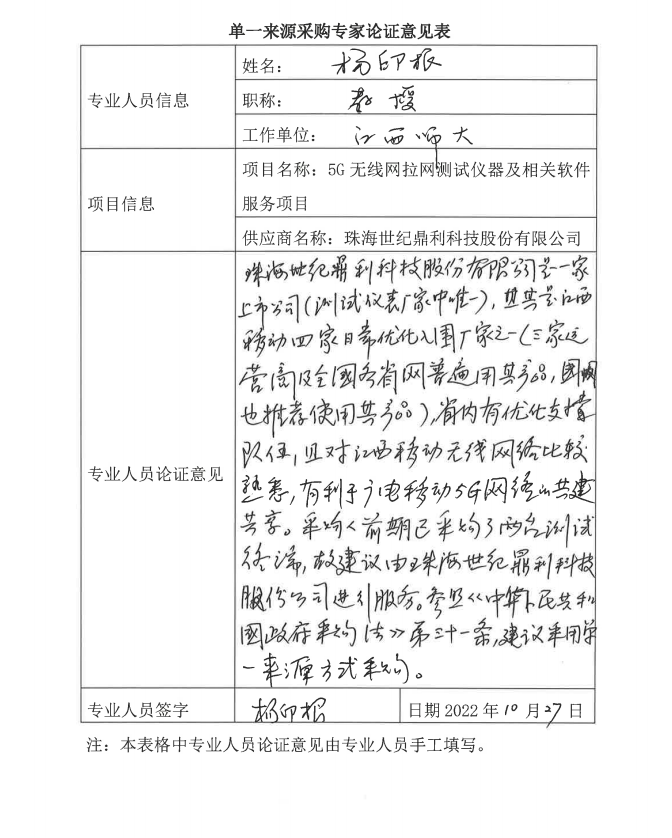 单一来源采购专家论证意见表
专业人员信息
姓名： 杨印根
职称： 教授
工作单位： 江西师大
项目信息
项目名称：5G 无线网拉网测试仪器及相关软件
服务项目
供应商名称：珠海世纪鼎利科技股份有限公司
专业人员论证意见
珠海世纪鼎利科技股份有限公司是一家
上市公司(测试仪表厂家中唯一)，且其是江西
移动四家日常优化入围厂家之一(三家运
营商及全国各省网普遍用其产品，国网
也推荐使用其产品)，省内有优化支撑
队伍，且对江西移动无线网络比较
熟悉，有利于广电移动5G网络的共建
共享。采购人前期已采购了两台测试
终端，故建议由珠海世纪鼎利科技
股份公司进行服务。参照《中华人民共和
国政府采购法》第三十一条，建议采用单
一来源方式采购。
专业人员签字 杨印根 日期 2022 年 10 月 27 日
注：本表格中专业人员论证意见由专业人员手工填写。